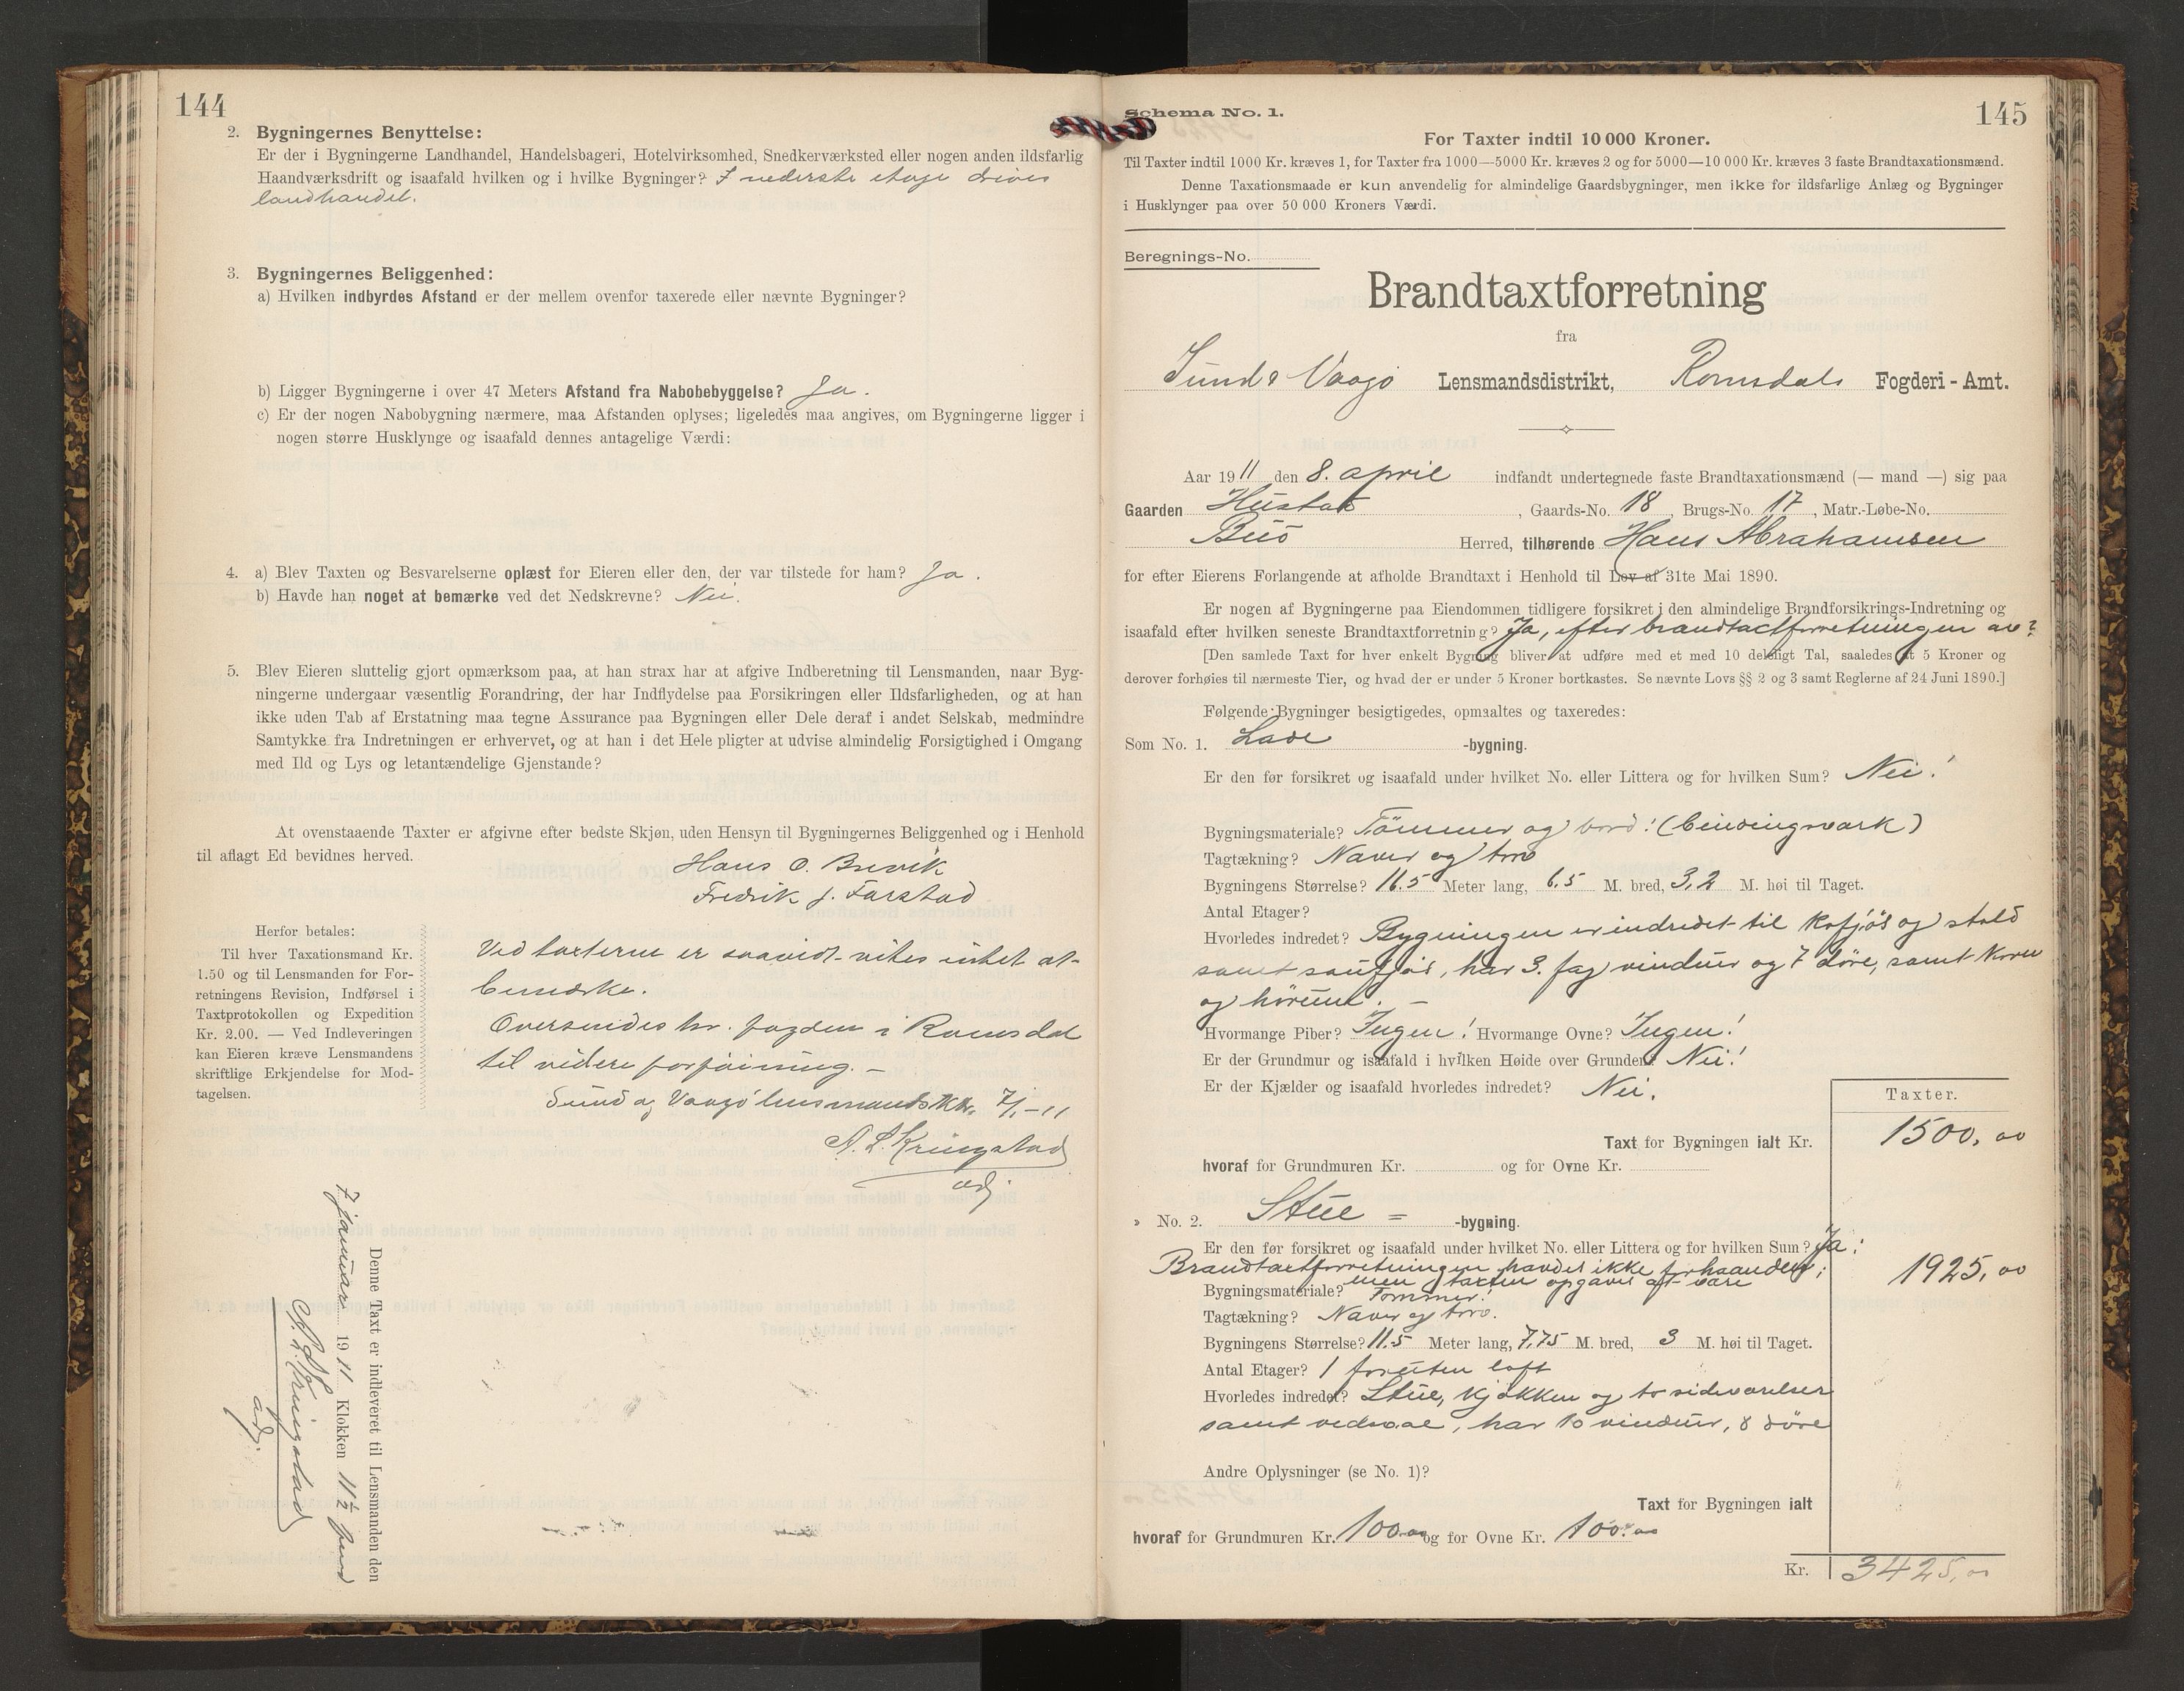 144
2. Bygningernes Benyttelse:
Er der i Bygningerne Landhandel, Handelsbageri, Hotelvirksomhed, Snedkerværksted eller nogen anden ildsfarlig
Haandværksdrift og isaafald hvilken og i hvilke Bygninger? I nederste etage drives
landhandel.
3. Bygningernes Beliggenhed:
a) Hvilken indbyrdes Afstand er der mellem ovenfor taxerede eller nævnte Bygninger?
b) Ligger Bygningerne i over 47 Meters Afstand fra Nabobebyggelse? Ja.
c) Er der nogen Nabobygning nærmere, maa Afstanden oplyses; ligeledes maa angives, om Bygningerne ligger i
nogen større Husklynge og isaafald dennes antagelige Værdi:
4. a) Blev Taxten og Besvarelserne oplæst for Eieren eller den, der var tilstede for ham? Ja.
b) Havde han noget at bemærke ved det Nedskrevne? Nei.
5. Blev Eieren sluttelig gjort opmærksom paa, at han strax har at afgive Indberetning til Lensmanden, naar Byg-
ningerne undergaar væsentlig Forandring, der har Indflydelse paa Forsikringen eller Ildsfarligheden, og at han
ikke uden Tab af Erstatning maa tegne Assurance paa Bygningen eller Dele deraf i andet Selskab, medmindre
Samtykke fra Indretningen er erhvervet, og at han i det Hele pligter at udvise almindelig Forsigtighed i Omgang
med Ild og Lys og letantændelige Gjenstande?
At ovenstaaende Taxter er afgivne efter bedste Skjøn, uden Hensyn til Bygningernes Beliggenhed og i Henhold
til aflagt Ed bevidnes herved.
Hans O. Brevik
Fredrik J. Farstad
Herfor betales:
Til hver Taxationsmand Kr.
1.50 og til Lensmanden for For-
retningens Revision, Indførsel i
Taxtprotokollen og Expedition
Kr. 2.00. — Ved Indleveringen
kan Eieren kræve Lensmandens
skriftlige Erkjendelse for Mod-
tagelsen.
Ved taxterne er saavidt vites intet at
bemærke.
Oversendes hr. fogden i Romsdal
til videre forføining. –
Sund og Vaagø lensmandsktr. 7/1-11
A. L. Kringstad
adj.
Denne Taxt er indleveret til Lensmanden den
7 januar 1911 Klokken 11½ form
A. L. Kringstad
adj.
145
Schema No. 1.
For Taxter indtil 10 000 Kroner.
Til Taxter indtil 1000 Kr. kræves 1, for Taxter fra 1000—5000 Kr. kræves 2 og for 5000—10 000 Kr. kræves 3 faste Brandtaxationsmænd.
Denne Taxationsmaade er kun anvendelig for almindelige Gaardsbygninger, men ikke for ildsfarlige Anlæg og Bygninger
i Husklynger paa over 50 000 Kroners Værdi.
Beregnings-No.
Brandtaxtforretning
fra
Sund & Vaagø Lensmandsdistrikt, Romsdals Fogderi-Amt.
Aar 1911 den 8. april indfandt undertegnede faste Brandtaxationsmænd (— mand —) sig paa
Gaarden Hustad, Gaards-No. 18, Brugs-No. 17, Matr.-Løbe-No.
Bud Herred, tilhørende Hans Abrahamsen
for efter Eierens Forlangende at afholde Brandtaxt i Henhold til Lov af 31te Mai 1890.
Er nogen af Bygningerne paa Eiendommen tidligere forsikret i den almindelige Brandforsikrings-Indretning og
isaafald efter hvilken seneste Brandtaxtforretning? Ja, efter brandtaxtforretningen av?
[Den samlede Taxt for hver enkelt Bygning bliver at udføre med et med 10 deleligt Tal, saaledes at 5 Kroner og
derover forhøies til nærmeste Tier, og hvad der er under 5 Kroner bortkastes. Se nævnte Lovs §§ 2 og 3 samt Reglerne af 24 Juni 1890.]
Følgende Bygninger besigtigedes, opmaaltes og taxeredes:
Som No. 1. Lade -bygning.
Er den før forsikret og isaafald under hvilket No. eller Littera og for hvilken Sum? Nei!
Bygningsmateriale? Tømmer og bord! (bindingsværk)
Tagtækning? Naver og torv
Bygningens Størrelse? 16.5 Meter lang, 6.5 M. bred, 3,2 M. høi til Taget.
Antal Etager?
Hvorledes indredet? Bygningen er indredet til kofjøs og stald
samt saufjøs, har 3. fag vinduer og 7 døre, samt korn
og hørum. –
Hvormange Piber? Ingen! Hvormange Ovne? Ingen!
Er der Grundmur og isaafald i hvilken Høide over Grunden? Nei!
Er der Kjælder og isaafald hvorledes indredet? Nei.
Taxter.
Taxt for Bygningen ialt Kr. 1500,00
hvoraf for Grundmuren Kr. og for Ovne Kr.
» No. 2. Stue = -bygning.
Er den før forsikret og isaafald under hvilket No. eller Littera og for hvilken Sum? Ja:
Brandtaxtforretningen havdes ikke forhaanden;
men taxten opgaves at være 1925,00
Bygningsmateriale? Tømmer!
Tagtækning? Naver og torv.
Bygningens Størrelse? 11.5 Meter lang, 7,75 M. bred, 3 M. høi til Taget.
Antal Etager? 1 foruten loft
Hvorledes indredet? Stue, kjøkken og to sideværelser
samt vedsval, har 10 vinduer, 8 døre
Andre Oplysninger (se No. 1)?
Taxt for Bygningen ialt
hvoraf for Grundmuren Kr. 100.00 og for Ovne Kr. 100.00
Kr. 3425,00